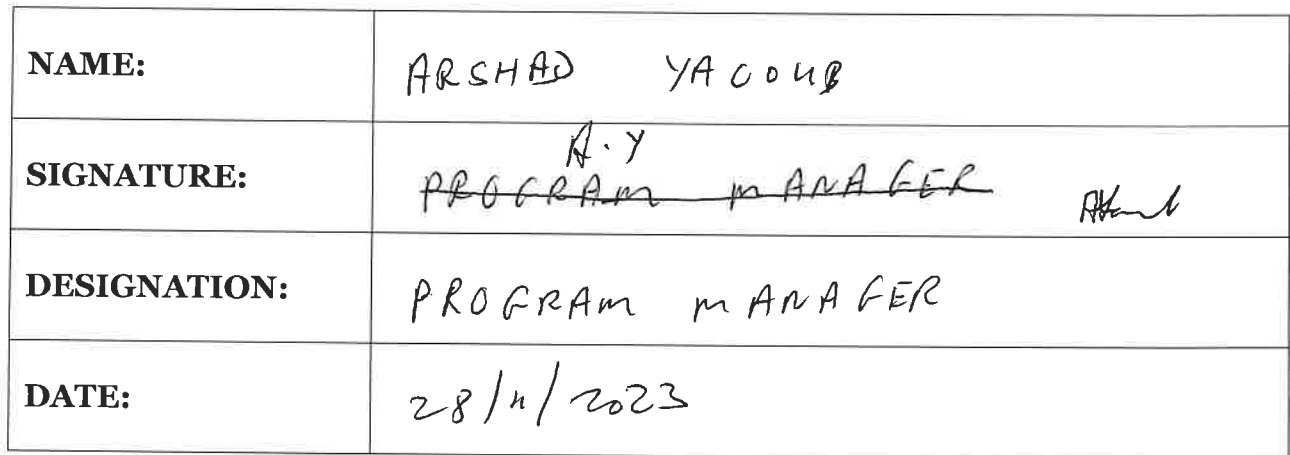 NAME: ARSHAD YACOUB
A.Y
SIGNATURE: PROGRAM MANAGER
DESIGNATION: PROGRAM MANAGER
DATE: 28/11/2023